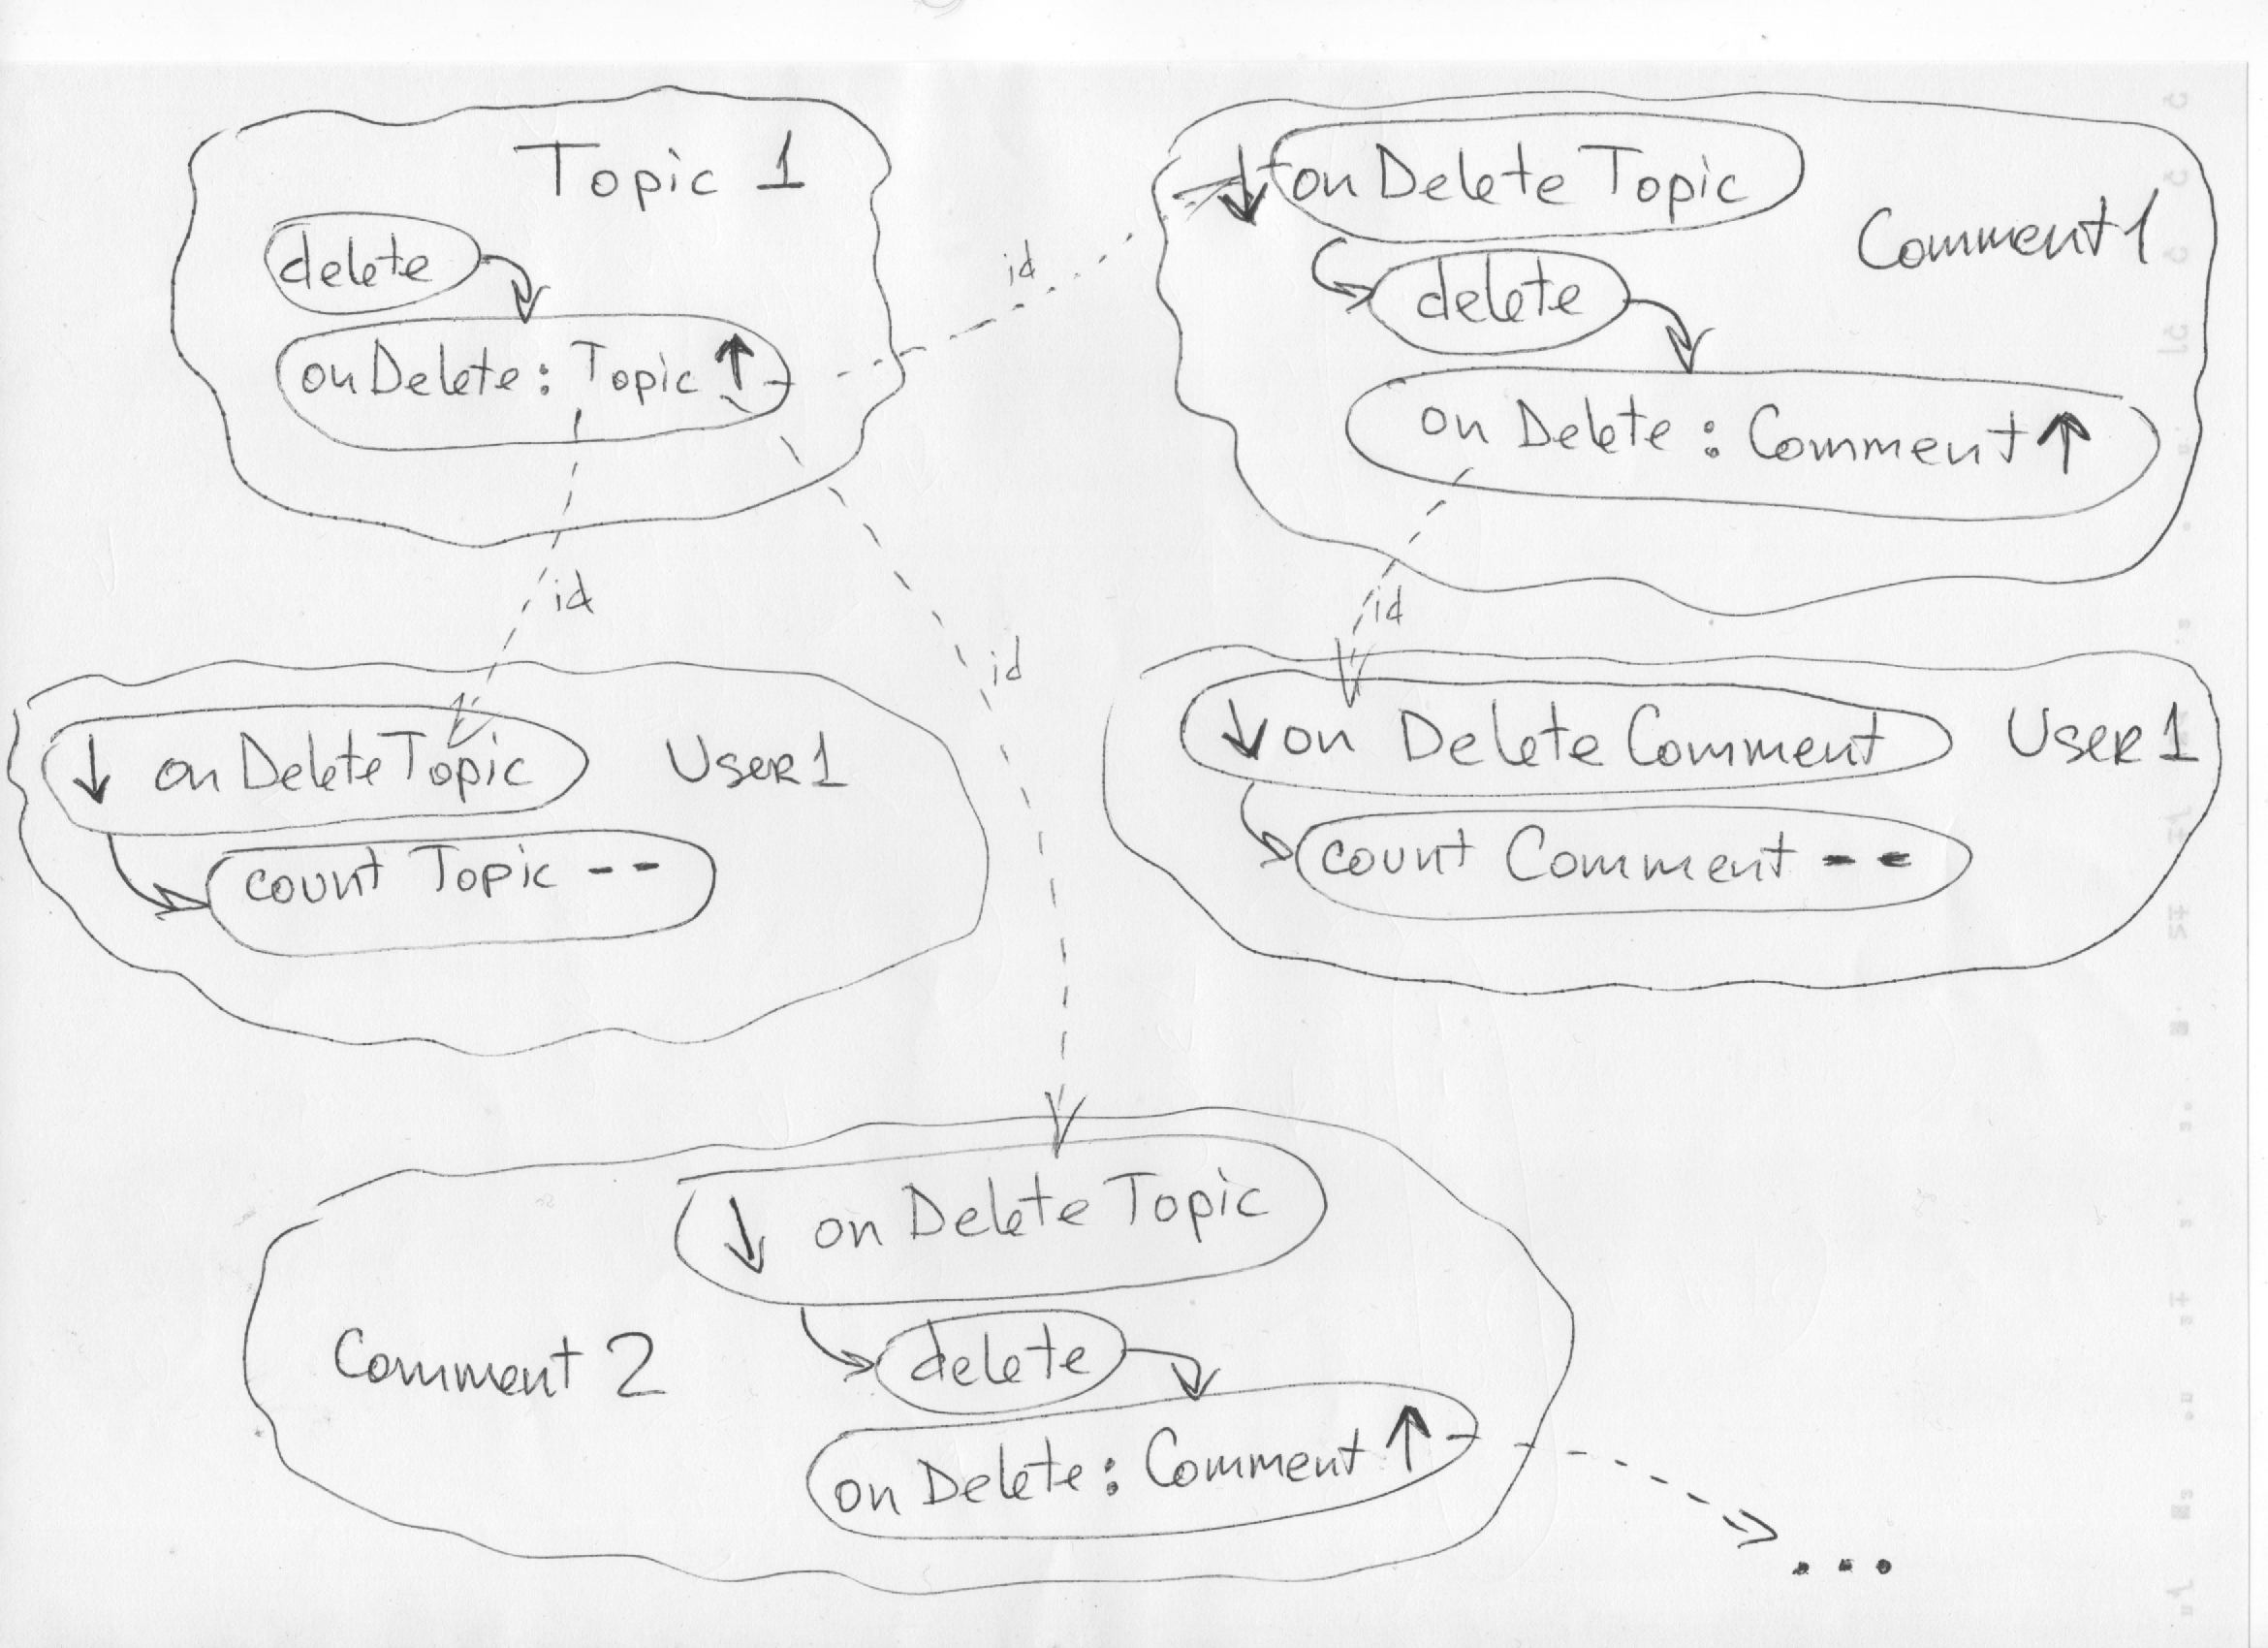 Topic 1
delete
onDelete: Topic ↑
id
id
id
↓ onDelete Topic
Comment 1
delete
onDelete: Comment ↑
id
↓ onDelete Topic
User 1
count Topic --
↓ on Delete Comment
User 1
count Comment --
↓ on Delete Topic
Comment 2
delete
on Delete: Comment ↑
...